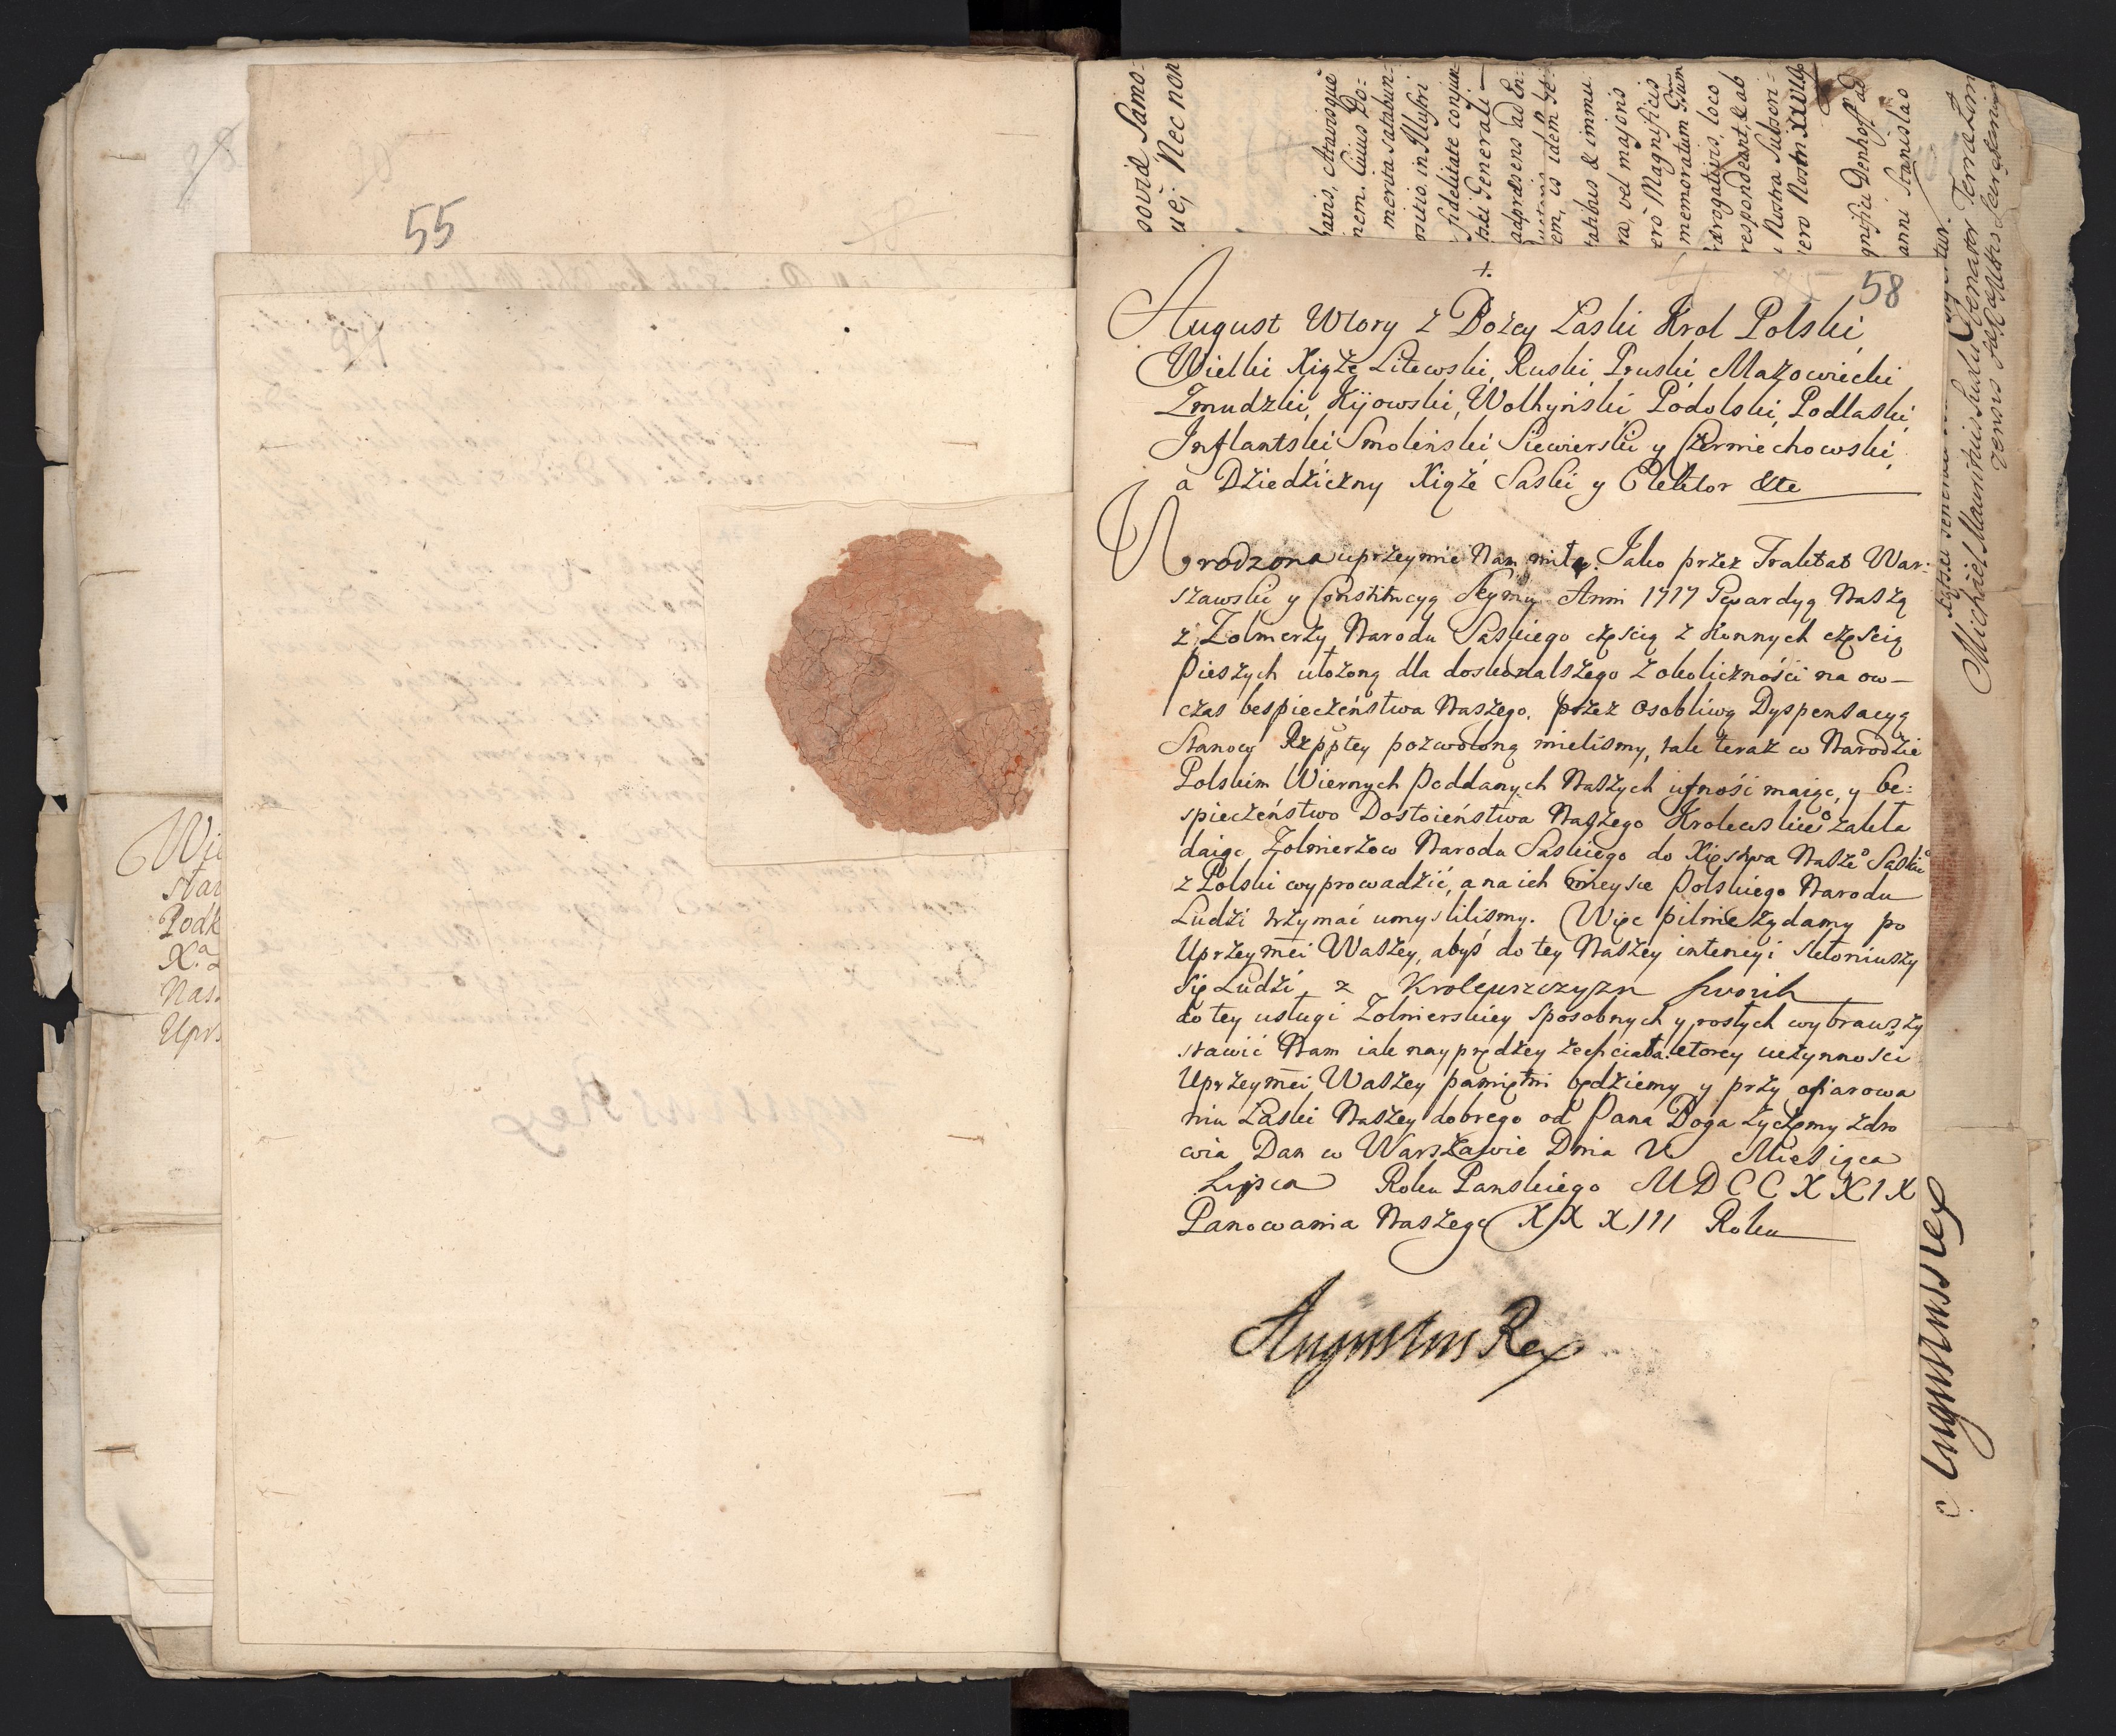 55
Wi
Star
Podk
Xa
Nas
Uprz
58
August Wtory z Bożey Łaski Krol Polski,
Wielki Xiąże Litewski, Ruski, Pruski, Mazowiecki
Zmudzki, Kijowski, Wolhyński Podolski, Podlaski,
Inflantski Smoleński, Siewierski y Czerniechowski,
a Dźiedźiczny Xiąże Saski y Elektor &te
Urodzona uprzeymie Nam miła. Jako przez Traktat War:
szawski y Constitucyą Seymu Anni 1717 Gwardyą Naszą
z Zolnierzy Narodu Saskiego częścią z Konnych częścią
Pieszych ułożoną dla doskonalszego z okolicznośći na ow-
czas bespieczeństwa Naszego, przez osobliwą Dyspensacyą
Stanow Rzpptey pozwoloną mielismy, tak teraz w Narodźie
Polskim Wiernych Poddanych Naszych ufność maiąc, y be:
spieczeństwo Dostoieństwa Naszego Krolewskieo zakła
daiąc, Zolnierzow Narodu Saskiego do Xięstwa Nasze Saskie
z Polski wyprowadźić, a na ich mieysce Polskiego Narodu
Ludźi trzymać umyslilismy. Więc pilnie żądamy po
Uprzeymci Waszey, abyś do tey Naszey intencyi skłoniwszy
się Ludźi, z Krolewszczyzn swoich
do tey usługi Zolnierskiey sposobnych y rosłych wybrawszy
stawić Nam iak nayprędzey zechciała. ktorey uczynnośći
Uprzeymci Waszey pamiętni będźiemy, y przy ofiarowa
niu Łaski Naszey dobrego od Pana Boga życzemy zdro
wia Dan w Warszawie Dnia V Miesiąca
Lipca Roku Panskiego MDCCXXIX
Panowania Naszego XXXIII Roku
Augustus Rex
ue, Nec non
havis, Atavisque
nem. Cuius Do:
merita
in Illustri
fidelitate conjun:
Generali
adpraesens ad
em, is idem
& immu
ra, vel majoris
ero Magnificus
memoratum
loco
respondeant, & ab
Nostra Subscri:
Denhoff ad
anni Stanislao
Augustus Rex